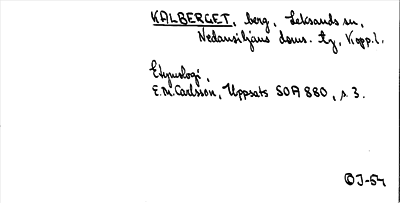 KALBERGET, berg, Leksands sn,
Nedansiljans doms. tg, Kopp.l.
Etymologi.
E.M. Carlsson, Uppsats SOA 880, s. 3.
©J-54